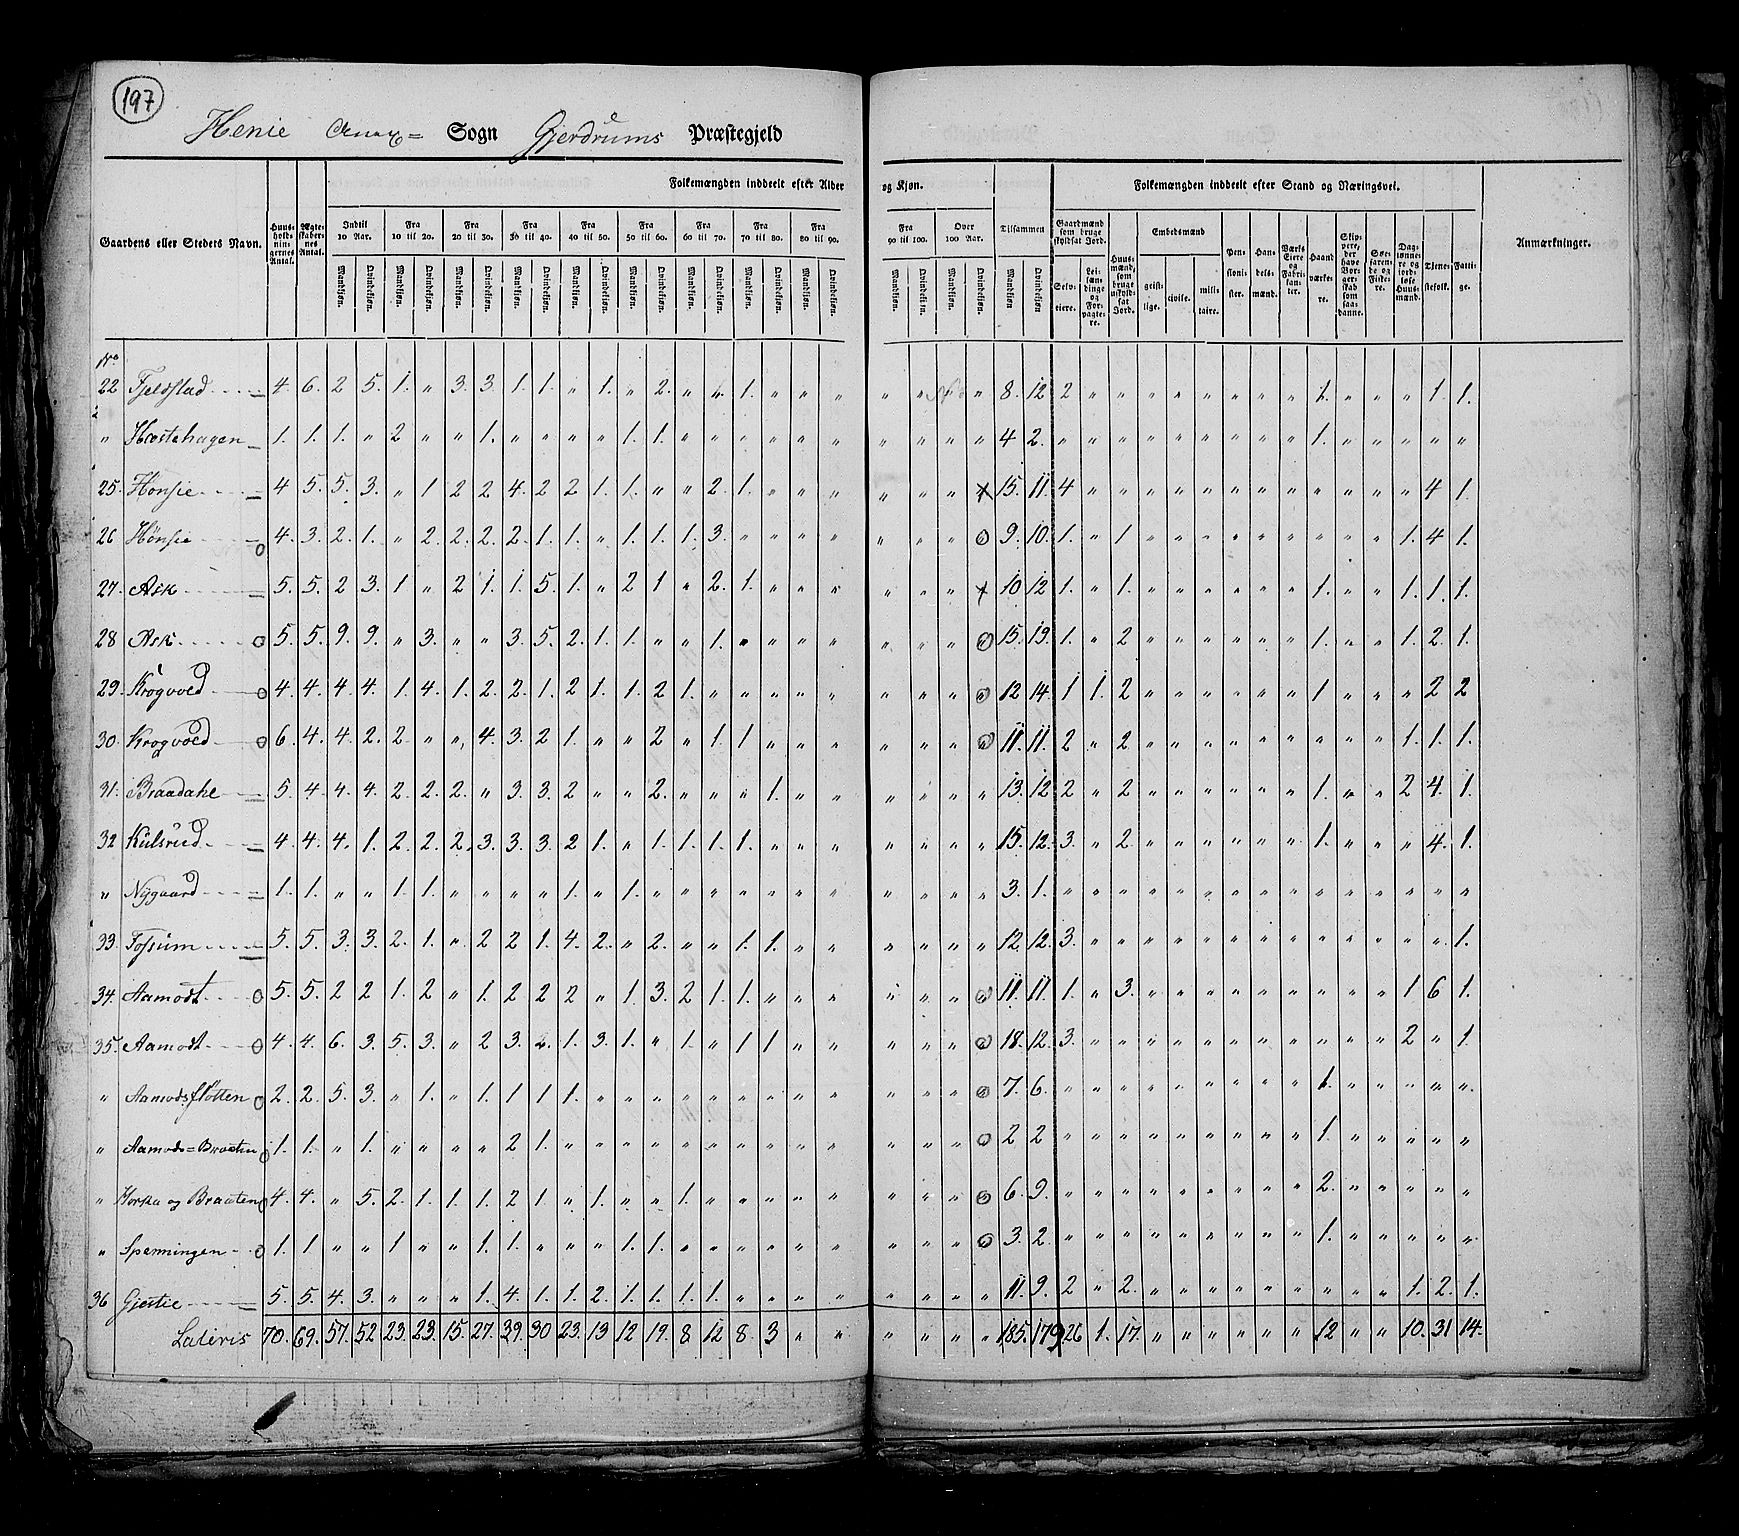 197
Henie Annex= Sogn Gjerdrums Præstegjeld
Folkemængden inddeelt efter Alder og Kjøn. Folkemængden inddeelt efter Stand og Næringsvei.
Gaardens eller Stedets Navn. Huusholdningernes Antal. Ægteskabernes Antal. Indtil 10 Aar. Fra 10 til 20. Fra 20 til 30. Fra 30 til 40. Fra 40 til 50. Fra 50 til 60. Fra 60 til 70. Fra 70 til 80. Fra 80 til 90. Fra 90 til 100. Over 100 Aar. Tilsammen Gaardmænd som bruge skyldsat Jord. Huusmænd, som bruge uskyldsat Jord. Embedsmænd Pensionister. Handelsmænd. Værks Eiere og Fabrikanter. Haandværkere. Skippere, der have Borgerskab som saadanne. Søefarende og Fiskere. Daglønnere og jordløse Huusmænd. Tjenestefolk. Fattige. Anmærkninger.
Mandkjøn. Qvindekjøn. Mandkjøn. Qvindekjøn. Mandkjøn. Qvindekjøn. Mandkjøn. Qvindekjøn. Mandkjøn. Qvindekjøn. Mandkjøn. Qvindekjøn. Mandkjøn. Qvindekjøn. Mandkjøn. Qvindekjøn. Mandkjøn. Qvindekjøn. Mandkjøn. Qvindekjøn. Mandkjøn. Qvindekjøn. Mandkjøn Qvindekjøn Selveiere. Leilændinge og Forpagtere. geistlige. civile. militaire.
No
22 Fjeldstad 4. 6. 2 5. 1. " 3. 3. 1. 1. " 1. " 2. " " 1. " " " " " " 8. 12 2 " " " " " " " " 1. " " " 1. 1.
" Hæstehagen 1. 1. 1. " 2 " " 1. " " " " 1. 1. " " " " " " " " " " 4 2. " " " " " " " " " 1. " " " " "
25. Hønsie 4 5. 5. 3. " 1 2 2 4. 2 2 1. 1. " " 2. 1. " " " " " " 15. 11. 4 " " " " " " " " " " " " 4 1.
26 Hønsie 4. 3. 2. 1. " 2. 2. 2. 2. 1. 1. " 1. 1. 1. 3. " " " " " " " 9. 10. 1. " 1 " " " " " " " " " 1. 4 1.
27. Ask 5. 5. 2 3. 1 " 2 1. 1. 5. 1. " 2 1 " 2. 1. " " " " " " 10 12 1. " 1. " " " " " " 1. " " 1. 1. 1.
28 Ask 5. 5. 9. 9. " 3. " " 3. 5. 2. 1. 1. " " 1. " " " " " " " 15. 19. 1. " 2 " " " " " " 1. " " 1. 2. 1.
29. Krogvold 4. 4. 4. 4. 1. 4. 1. 2. 2. 1. 2 1. 1. 2 1. " " " " " " " " 12 14. 1 1. 2 " " " " " " 1. " " " 2 2
30. Krogvold 6. 4. 4. 2. 2. " " 4. 3. 2 1. " " 2 " 1. 1 " " " " " " 11. 11. 2 " 2 " " " " " " " " " 1. 1. 1.
31. Braadahl 5. 4. 4. 4. 2. 2. 2. " 3. 3. 2 " " 2. " " " 1. " " " " " 13. 12 2 " 2 " " " " " " 1. " " 2 4. 1.
32 Kulsrud 4. 4. 4. 1. 2. 2. 2. 3. 3. 3. 2 1. " 1. 1. 1. 1. " " " " " " 15. 12. 3. " 2. " " " " " " 1. " " " 4. 1.
" Nÿgaard 1. 1. " " 1. 1. " " " " 1. " 1. " " " " " " " " " " 3. 1. " " " " " " " " " " " " " " "
33. Fossum 5. 5. 3. 3. 2. 1. " 2 2 1. 4. 2. " 2. " " 1. 1. " " " " " 12. 12. 3. " " " " " " " " " " " " " 1.
34. Aamodt 5. 5. 2 2 1. 2 " 1. 2 2 2 " 1. 3. 2 1. 1. " " " " " " 11. 11. 1. " 3. " " " " " " " " " 1 6 1.
35. Aamodt 4. 4. 6. 3. 5. 3. " 2 3. 2. 1. 3. 1. " 1. " 1 1 " " " " " 18. 12. 3. " " " " " " " " " " " 2 " 1.
" Aamodsfløtten 2. 2. 5 3. " 1. " 1. 1 1 1. " " " " " " " " " " " " 7. 6. " " " " " " " " " 1. " " " " "
" Aamods=Braaten 1. 1. " 1. " " " " 2 1. " " " " " " " " " " " " " 2 2 " " " " " " " " " 1. " " " " "
" og Braaten 4. 4. " 5. 2. 1. 1. 1. 2 1. " 1. " " 1. " " " " " " " " 6. 9. " " " " " " " " " 2. " " " " "
" Spenningen 1. 1 " " 1 " " 1. 1. " " " 1. 1. " " " " " " " " " 3. 2. " " " " " " " " " 1. " " " " "
36 Gjestie 5. 5. 4. 3. " " " 1. 4. 1. 1. 2. 1. 1. 1. 1. " " " " " " " 11. 9. 2 " 2. " " " " " " " " " 1. 2. 1.
Lateris 70. 69. 57. 52 23. 23. 15. 27. 39. 30 23. 13 12 19. 8 12 8. 3 " " " " " " 185. 179 26 1. 17. " " " " " " 12 " " 10. 31 14.